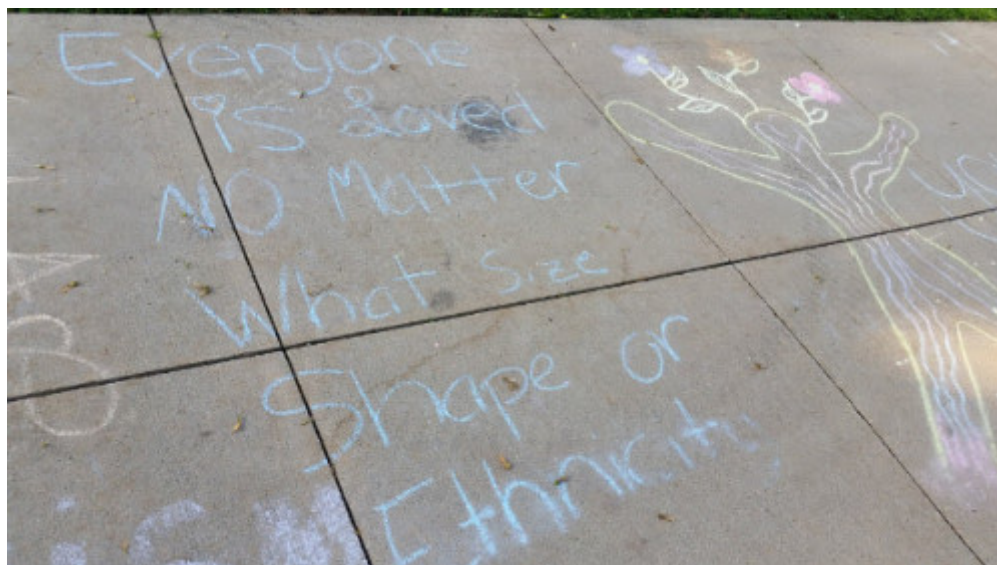 Everyone
is Loved
NO Matter
What Size
Shape or
Ethnicity